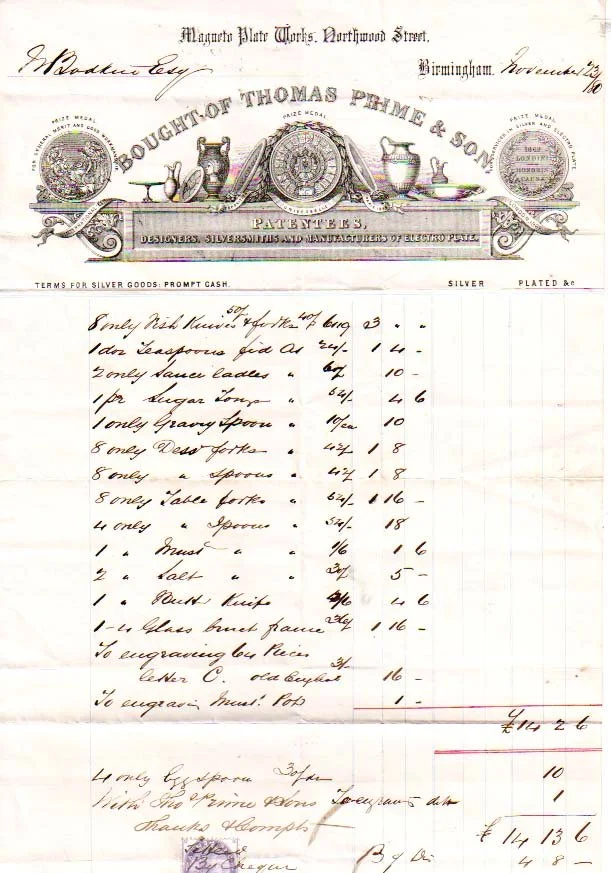 Magneto Plate Works. Northwood Street.
Birmingham. November 23
Esq
BOUGHT OF THOMAS PRIME & SON,
PRIZE MEDAL
PRIZE MEDAL
PRIZE MEDAL
1862
LONDINI
HONORIS
CAUSA
PATENTEES,
DESIGNERS, SILVERSMITHS AND MANUFACTURERS OF ELECTRO PLATE.
TERMS FOR SILVER GOODS: PROMPT CASH. SILVER PLATED &c
8 only Fish Knives & forks 3 " "
1 doz Teaspoons fid As 24/- 1 4 -
2 only Sauce ladles " 10 -
1 pr Sugar Tongs " 4 6
1 only Gravy Spoon " 10/ea 10
8 only Dess forks " 42/ 1 8
8 only " Spoons " 42/ 1 8
8 only Table forks " 54/- 1 16 -
4 only " Spoons " 54/- 18
1 " Must " " 1/6 1 6
2 " Salt " " 5 -
1 " Buttr Knife 4/6 4 6
1 - 4 Glass Cruet frame 36/ 1 16 -
To engraving 64 Pieces
letter C. old English 3/- 16 -
To engraving Must. Pots 1 -
£14 2 6
4 only Egg spoons 30/ 10
With Thos Prime & Sons To engraving 1
Thanks & Compts
£ 14 13 6
4 8 -